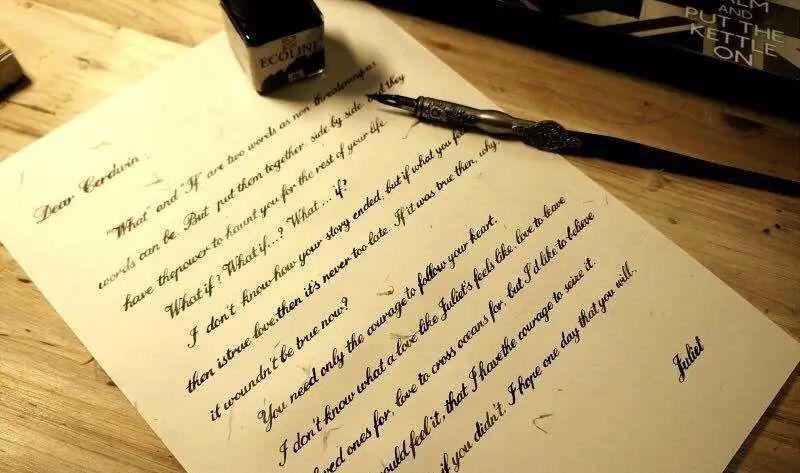 ECOLINE
AND
PUT THE
KETTLE
ON
Dear Cardwin,
"What" and "If" are two words as non-threatening as
words can be. But put them together, side by side, they
have thepower to haunt you for the rest of your life.
What if? What if...? What ... if?
I don't know how your story ended, but if what you
then istrue love,then it's never too late. If it was true then, why
it woundn't be true now?
You need only the courage to follow your heart.
I don't know what a love like Juliet's feels like, love to leave
ones for, love to cross oceans for, but I'd like to believe
feel it, that I have the courage to seize it.
if you didn't. I hope one day that you will.
Juliet